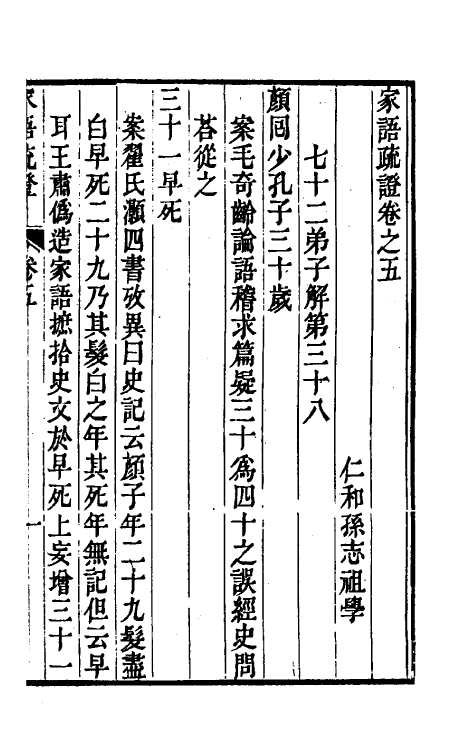 家語疏證卷之五
仁和孫志祖學
七十二弟子解第三十八
顏囘少孔子三十歲
案毛奇齡論語稽求篇疑三十為四十之誤經史問
荅從之
三十一早死
案翟氏灝四書攷異曰史記云顏子年二十九髮盡
白早死二十九乃其髮白之年其死年無記但云早
耳王肅僞造家語摭拾史文於早死上妄增三十一
家語疏證 卷五 一